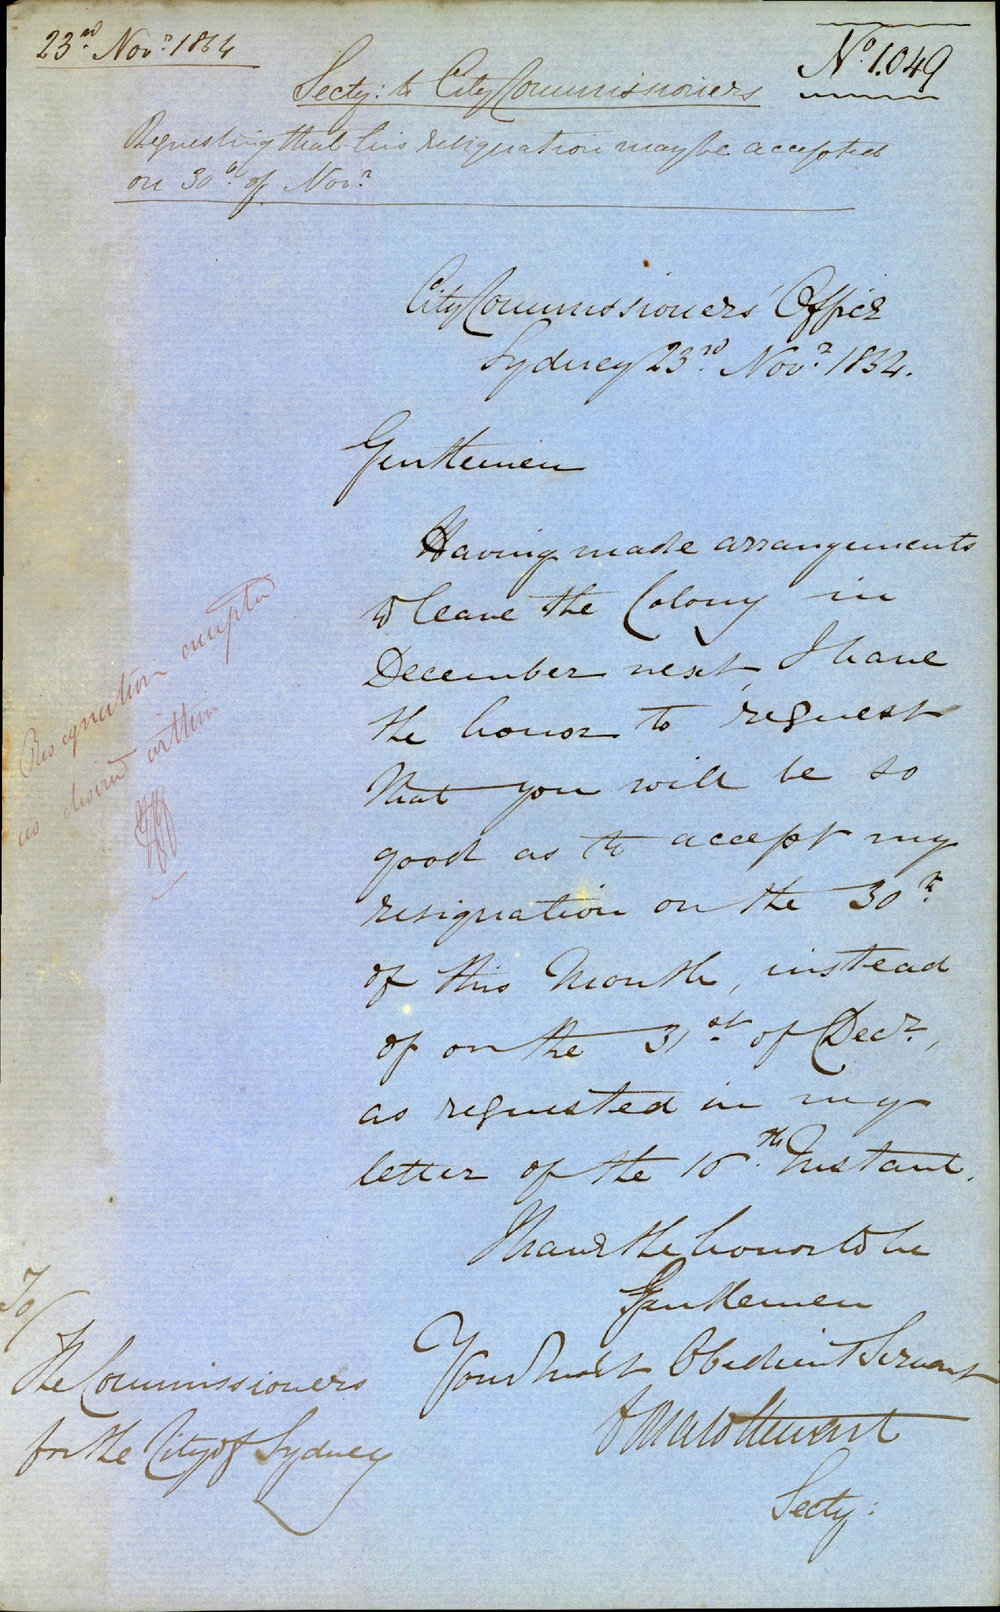 23rd Novr. 1854
No. 1.049
Secty: to City Commissioners
Requesting that his resignation may be accepted
on 30th. of Novr.
City Commissioners' Office
Sydney 23rd. Novr. 1854.
Gentlemen
Having made arrangements
to leave the Colony in
December next, I have
the honor to request
that you will be so
good as to accept my
resignation on the 30th.
of this Month, instead
of on the 31st. of Decr.,
as requested in my
letter of the 16th. Instant.
I have the honor to be
Gentlemen
Your Most Obedient Servant
Stewart
Secty:
Resignation accepted
as desired within
To/
The Commissioners
for the City of Sydney